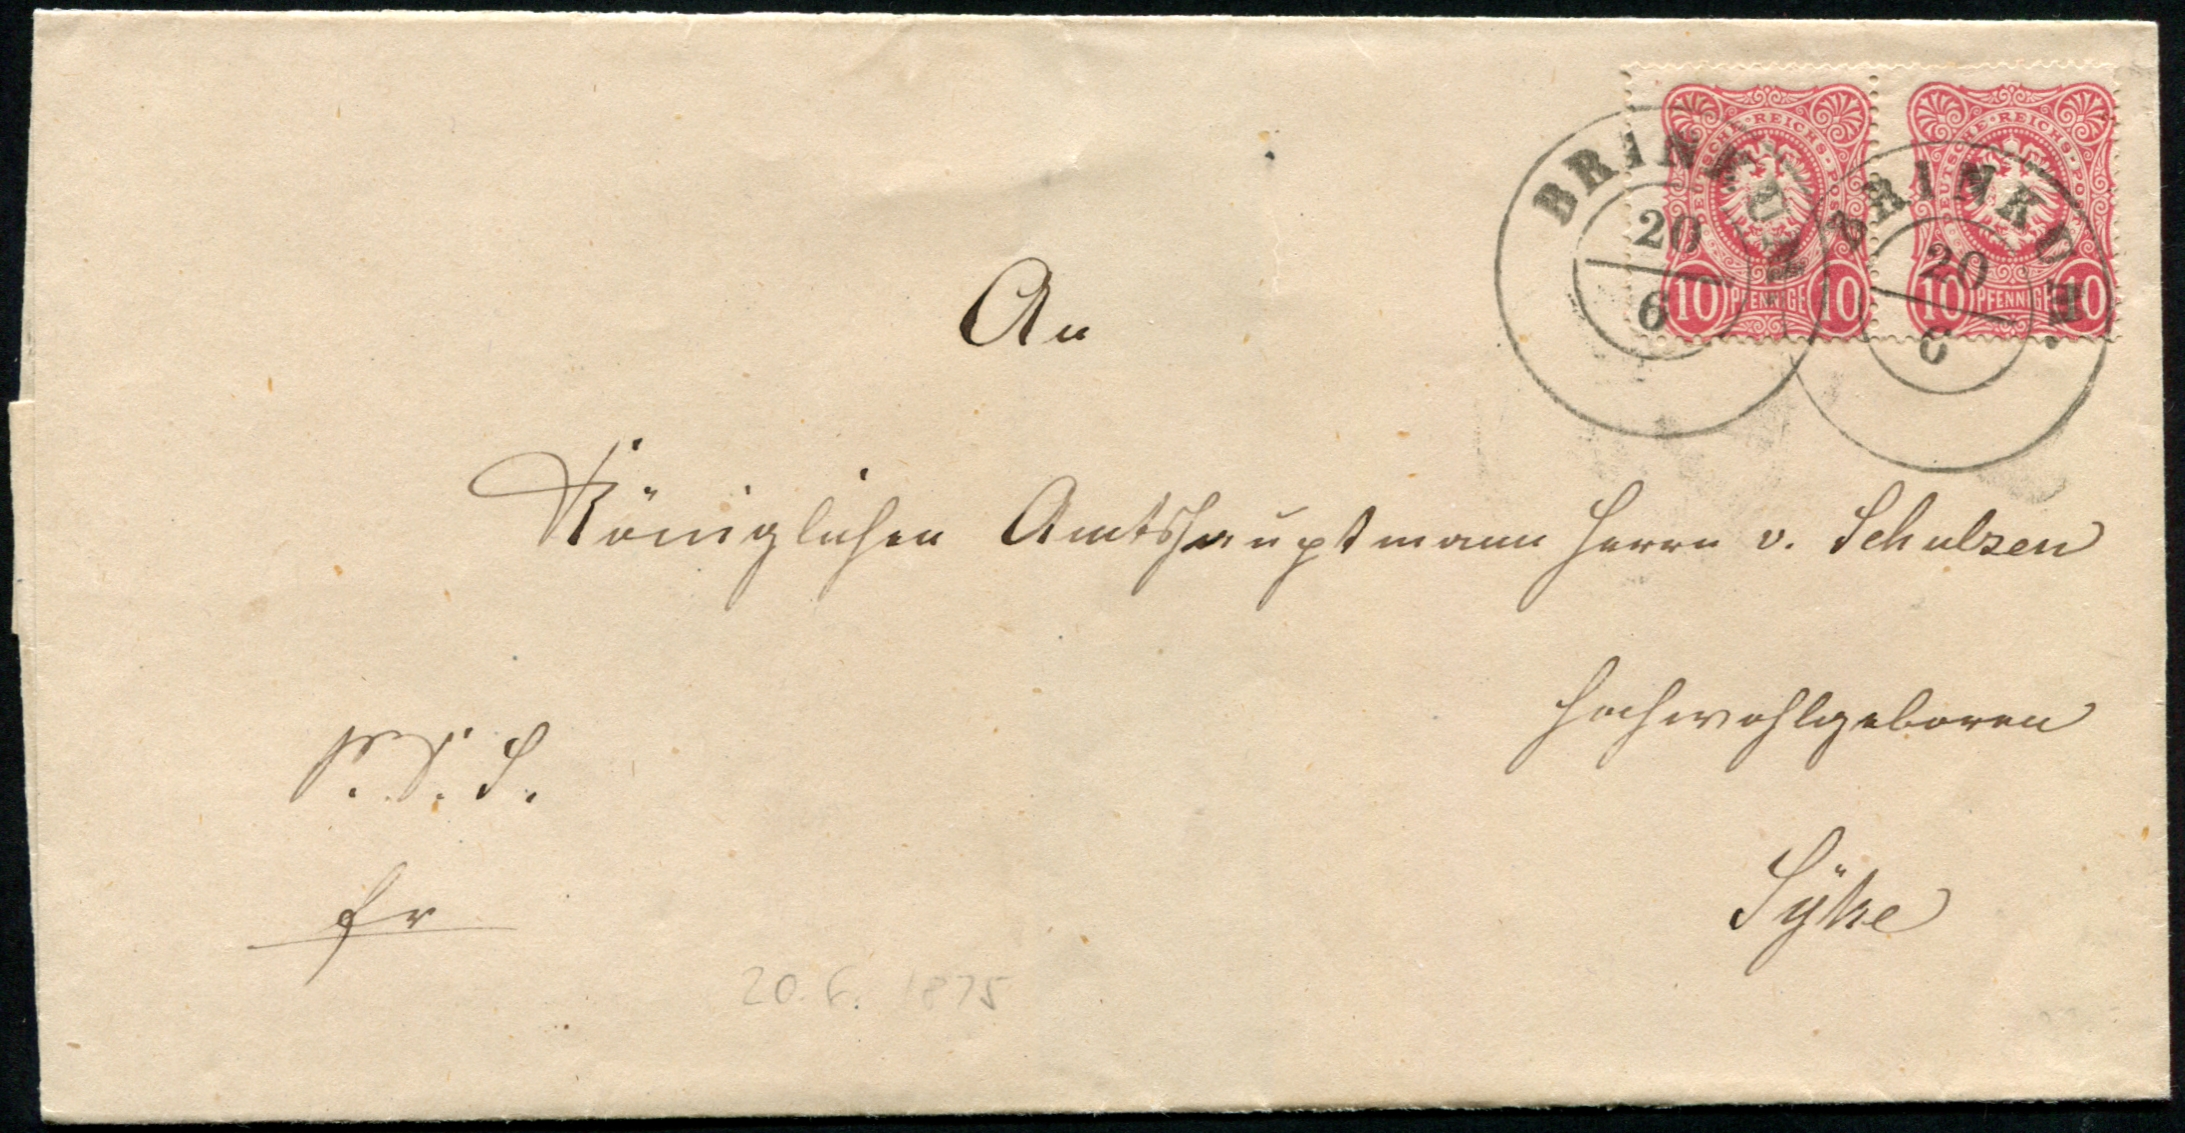 DEUTSCHE·REICHS-POST
10 PFENNIGE 10
DEUTSCHE·REICHS-POST
10 PFENNIGE 10
BRINKUM
20
6
BRINKUM.
20
6
An
Königlichen Amtshauptmann Herrn v. Schulzen
Hochwohlgeboren
Sÿke
fr
20. 6. 1875